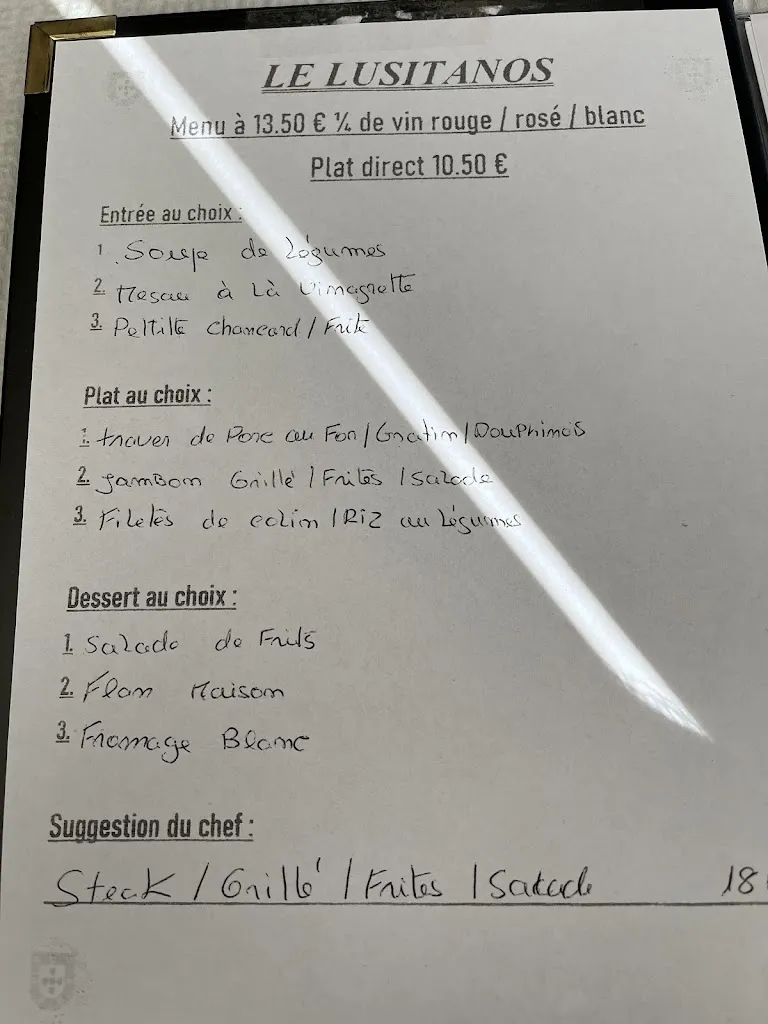 LE LUSITANOS
Menu à 13.50 € ¼ de vin rouge / rosé / blanc
Plat direct 10.50 €
Entrée au choix :
1. Soupe de Légumes
2. à Là Vimagrette
3. / Frite
Plat au choix :
1. traver de Porc au Fon / Gratin / DouPhinois
2. JamBom Grillé / Frites / Salade
3. Filetès de colin / RIZ au Légumes
Dessert au choix :
1. Salade de Fruits
2. Flan Maison
3. Fromage Blanc
Suggestion du chef :
Steak / Grillé / Frites / Salade 18